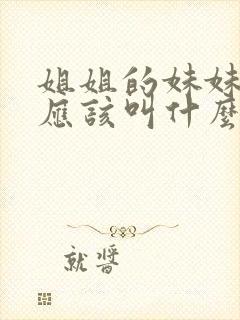 姐姐的妹妹
應該叫什麼
就醬